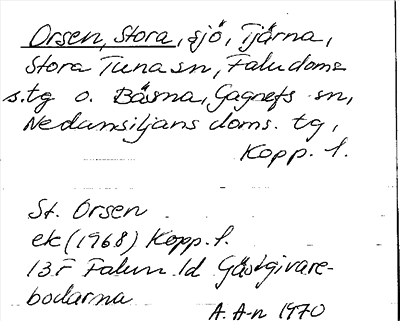 Orsen, Stora, sjö, Tjärna,
Stora Tuna sn, Falu doms
s.tg o. Bäsna, Gagnefs sn,
Nedansiljans doms. tg,
Kopp. l.
St. Orsen
ek (1968) Kopp. l.
13 F Falun 1d Gästgivare-
bodarna
A. A-n 1970